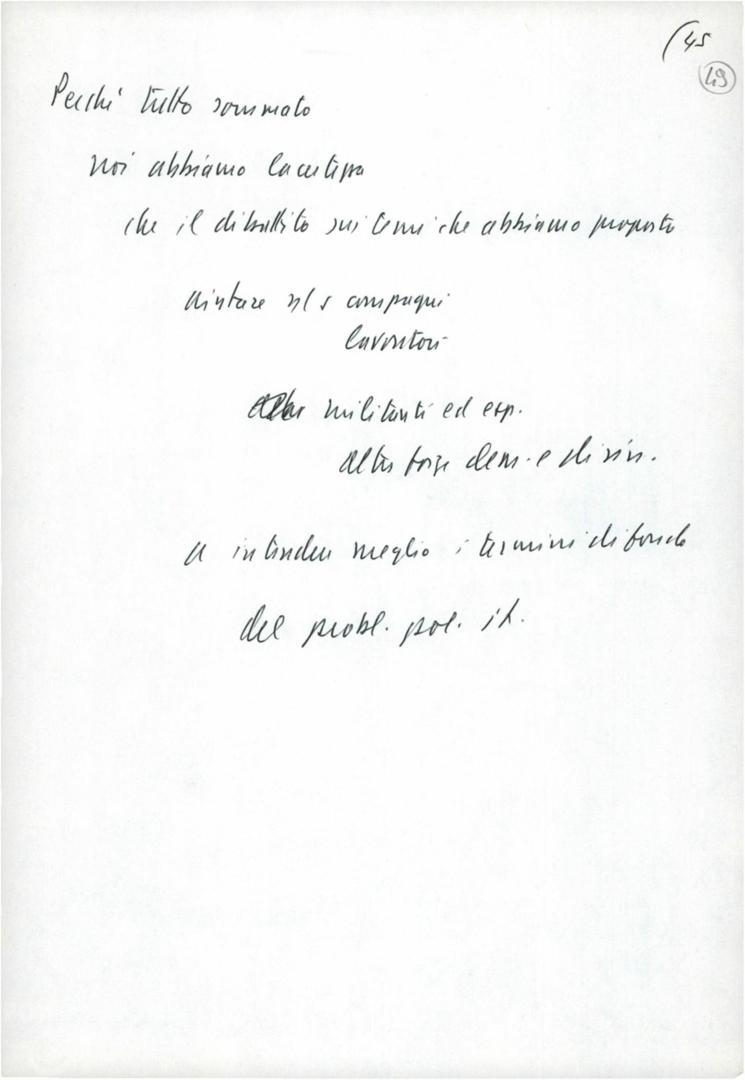 (45
49
Perché tutto sommato
noi abbiamo la certezza
che il dibattito sui temi che abbiamo proposto
aiutare compagni
lavoratori
militanti ed esp.
altre forze dem. e di sin.
a intendere meglio i termini di fondo
del probl. pol. it.